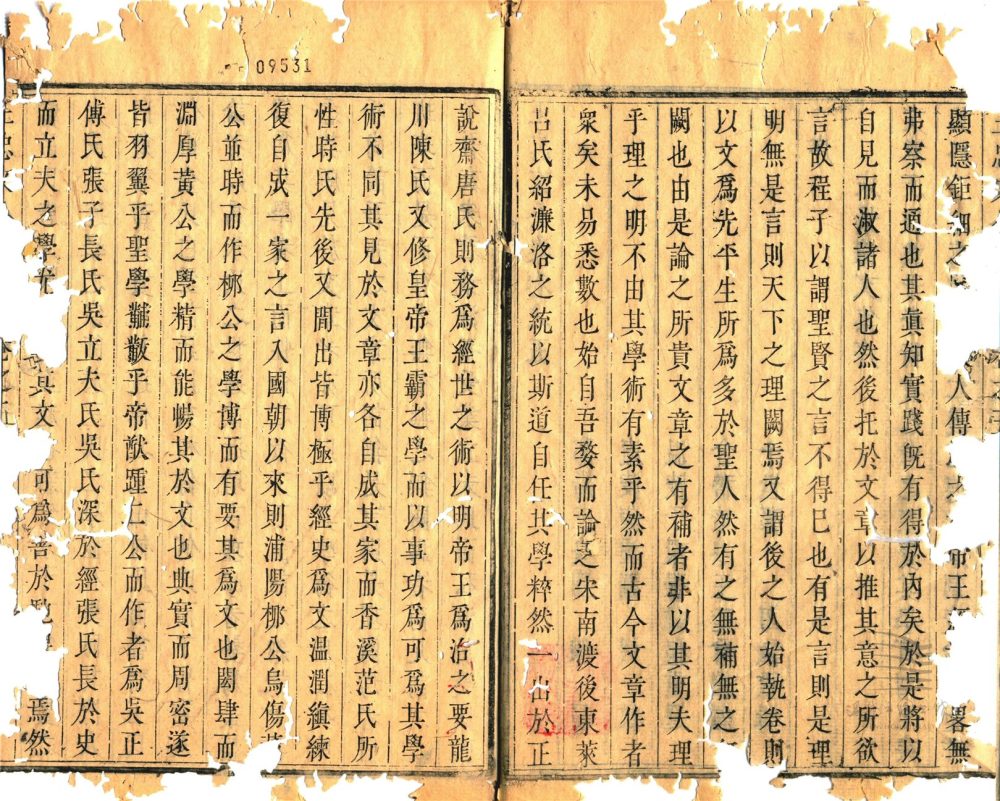 09531
顯隱鉅細之 人傳 之 帝王 畧無
弗察而通也其眞知實踐旣有得於內矣於是將以
自見而淑諸人也然後托於文章以推其意之所欲
言故程子以謂聖賢之言不得巳也有是言則是理
明無是言則天下之理闕焉又謂後之人始執卷則
以文爲先平生所爲多於聖人然有之無補無之
闕也由是論之所貴文章之有補者非以其明夫理
乎理之明不由其學術有素乎然而古今文章作者
衆矣未易悉數也始自吾婺而論之宋南渡後東萊
呂氏紹濂洛之統以斯道自任其學粹然一出於正
說齋唐氏則務爲經世之術以明帝王爲治之要龍
川陳氏又修皇帝王霸之學而以事功爲可爲其學
術不同其見於文章亦各自成其家而香溪范氏所
性時氏先後又間出皆博極乎經史爲文温潤縝練
復自成一家之言入國朝以來則浦陽栁公烏傷
公並時而作栁公之學博而有要其爲文也閎肆而
淵厚黃公之學精而能暢其於文也典實而周密遂
皆羽翼乎聖學黼黻乎帝猷踵二公而作者爲吳正
傅氏張子長氏吳立夫氏吳氏深於經張氏長於史
而立夫之學尤 其文 可爲善於 焉然